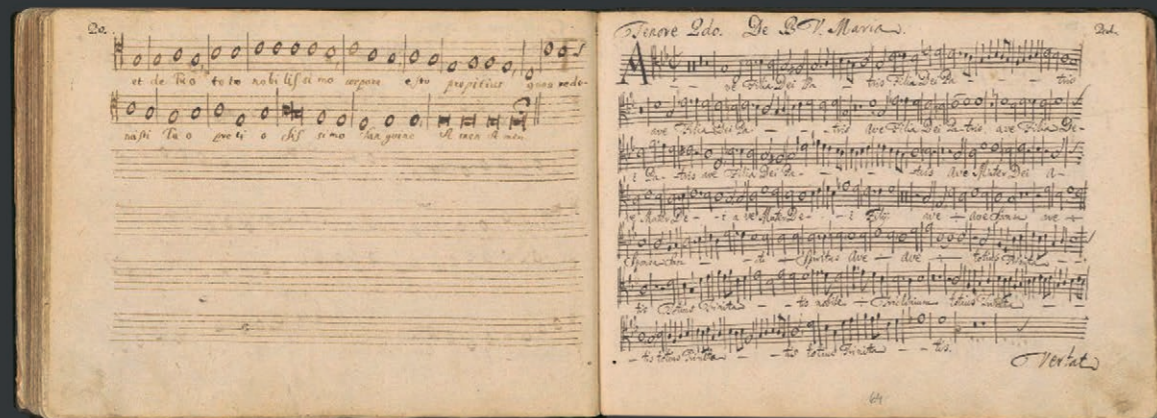 20.
et de Tuo toto nobilissimo corpore esto propitius quem rede-
misti Tuo pretiosissimo sanguine Amen Amen
Tenore 2do. De B V. Maria.
Ave Filia Dei Pa - - tris Filia Dei Pa - - tris
ave Filia Dei Pa - - - - tris ave Filia Dei Patris, ave Filia De-
i Pa - tris ave Filia Dei Pa - - - - tris ave Mater Dei a-
ve Mater De - - i ave Mater De - - - i Filij ave - ave ave -
Sponsa - - ti - Spiritus ave - ave - totius Trinita -
tis totius Trinita - - - tis nobile - Triclinium totius Trinita -
- tis totius Trinita - - - tis totius Trinita - - tis.
Vertat
64